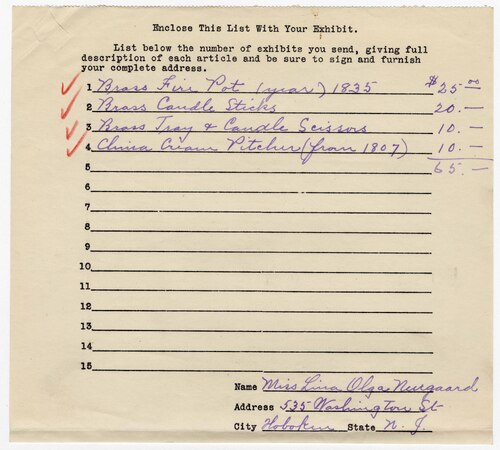 Enclose This List With Your Exhibit.
List below the number of exhibits you send, giving full
description of each article and be sure to sign and furnish
your complete address.
1 Brass Fire Pot (year) 1835 $25.00
2 Brass Candle Sticks 20.—
3 Brass Tray & Candle Scissors 10.—
4 China Cream Pitcher (from 1807) 10.—
5 65.—
6
7
8
9
10
11
12
13
14
15
Name Miss Lina Olga Nurgaard
Address 535 Washington St
City Hoboken State N. J.